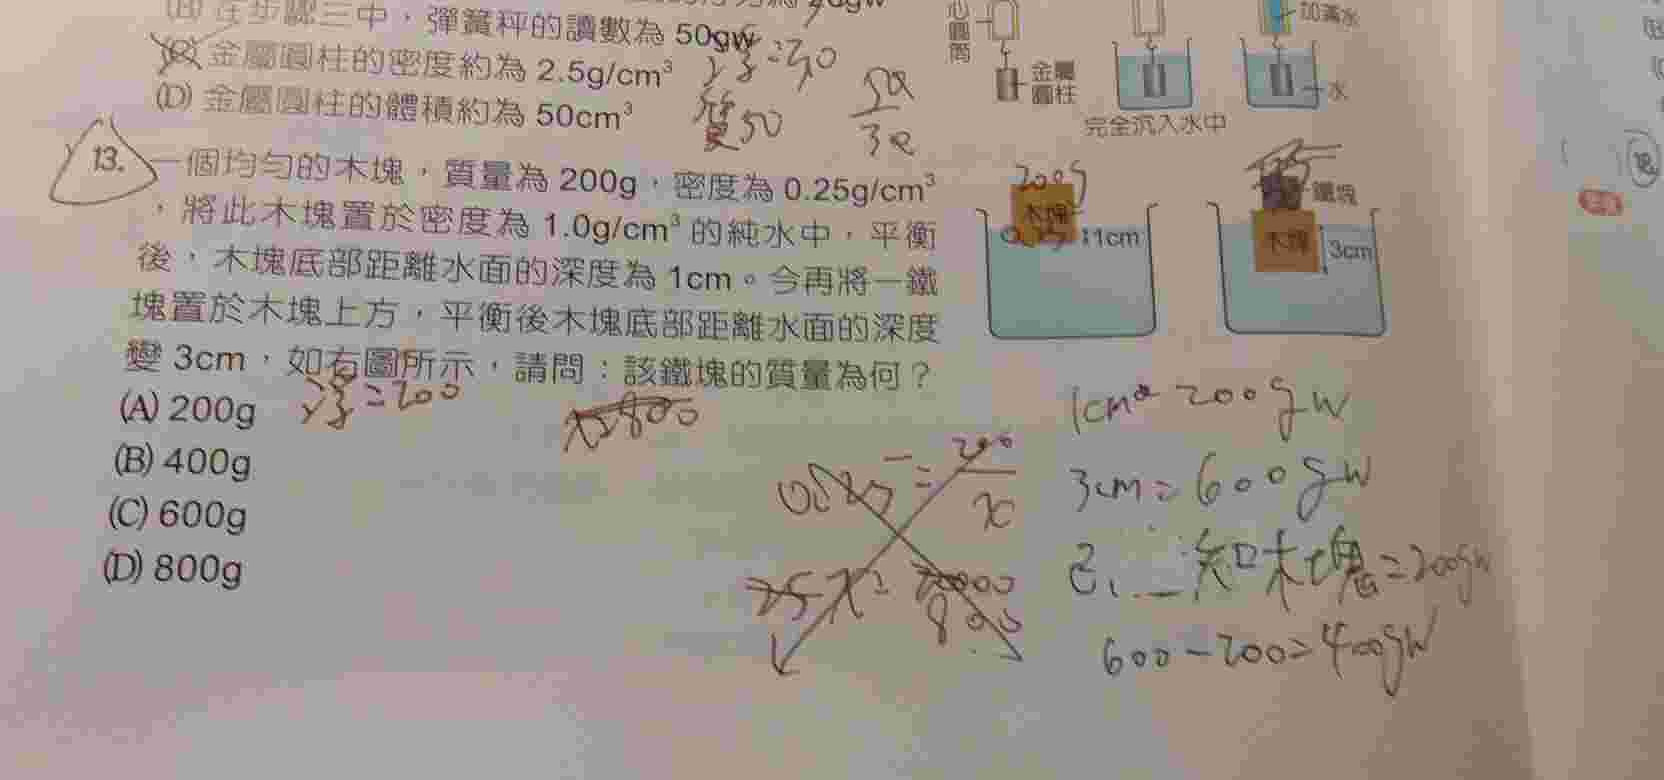 (B) 在步驟三中，彈簧秤的讀數為 50gw
(C) 金屬圓柱的密度約為 2.5g/cm³
浮=30
(D) 金屬圓柱的體積約為 50cm³
質50
加滿水
金屬
圓柱
水
完全沉入水中
13. 一個均勻的木塊，質量為 200g，密度為 0.25g/cm³
，將此木塊置於密度為 1.0g/cm³ 的純水中，平衡
後，木塊底部距離水面的深度為 1cm。今再將一鐵
塊置於木塊上方，平衡後木塊底部距離水面的深度
變 3cm，如右圖所示，請問：該鐵塊的質量為何？
200g
木塊
1cm
鐵塊
木塊
3cm
(A) 200g
浮=200
(B) 400g
(C) 600g
(D) 800g
x=800
200
x
800
1cm=200gw
3cm=600gw
已知木塊=200gw
600-200=400gw